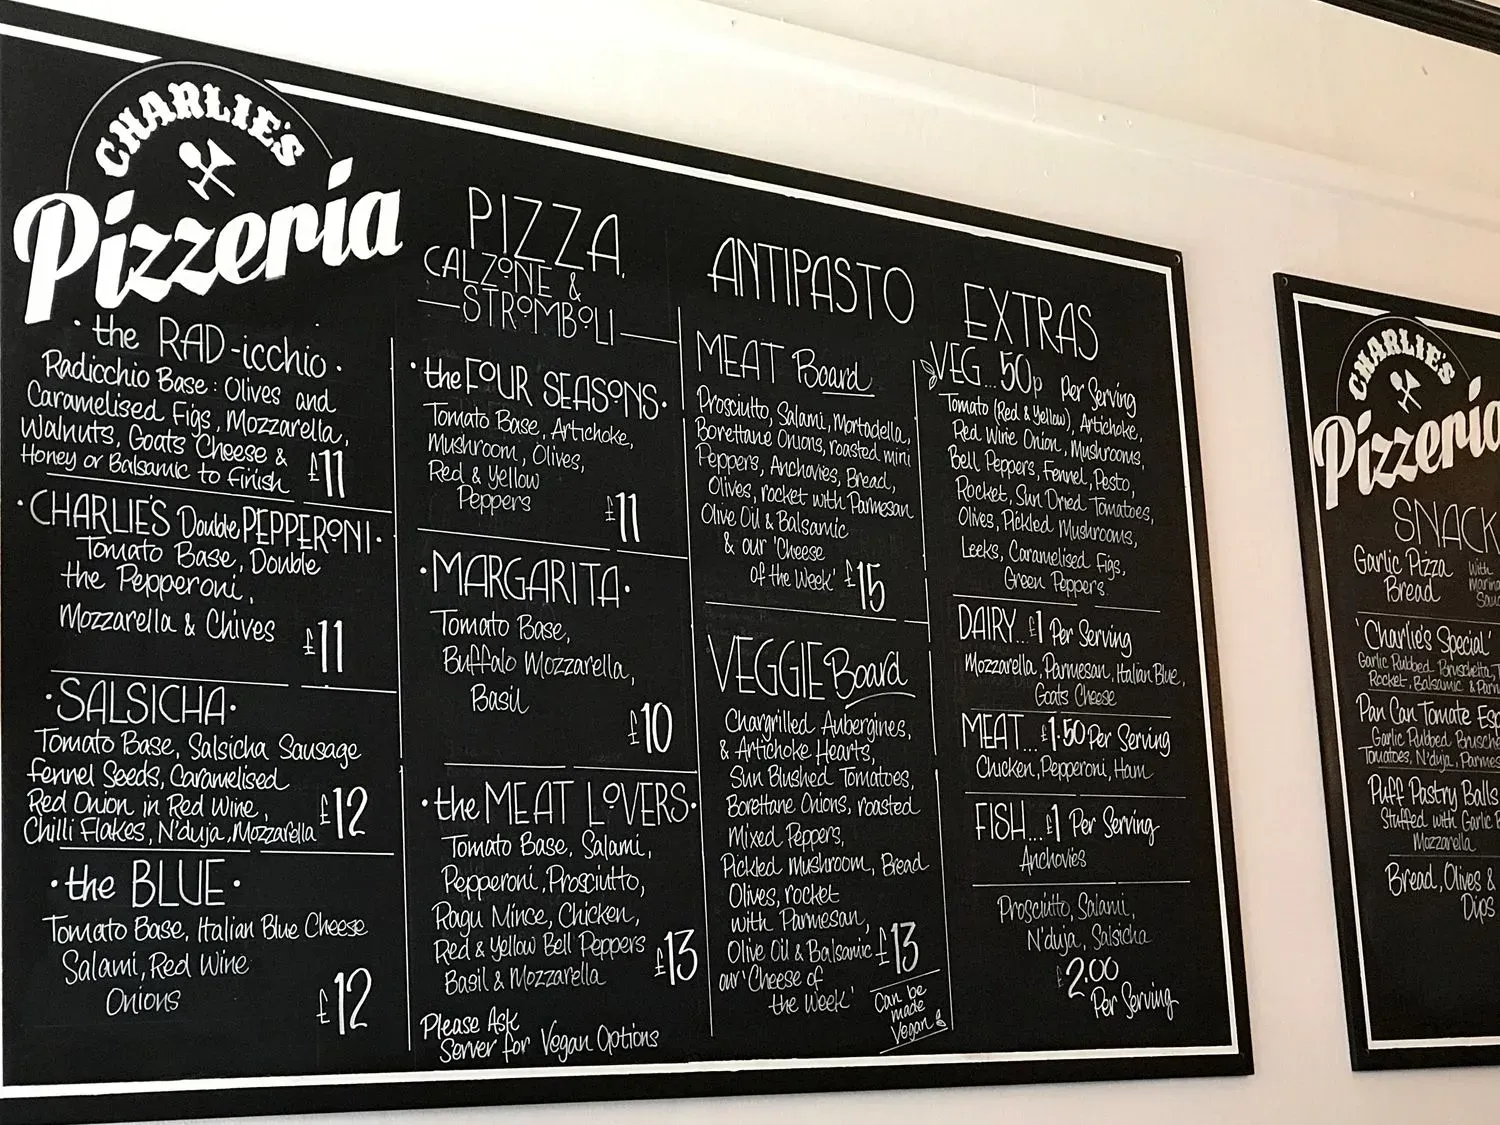 CHARLIE'S
Pizzeria
· the RAD-icchio ·
Radicchio Base: Olives and
Caramelised Figs, Mozzarella,
Walnuts, Goats Cheese &
Honey or Balsamic to finish £11
· CHARLIE'S Double PEPPERONI ·
Tomato Base, Double
the Pepperoni,
Mozzarella & Chives £11
· SALSICHA ·
Tomato Base, Salsicha Sausage
Fennel Seeds, Caramelised
Red Onion in Red Wine,
Chilli Flakes, N'duja, Mozzarella £12
· the BLUE ·
Tomato Base, Italian Blue Cheese
Salami, Red Wine
Onions £12
PIZZA,
CALZONE &
STROMBOLI
· the FOUR SEASONS ·
Tomato Base, Artichoke,
Mushroom, Olives,
Red & Yellow
Peppers £11
· MARGARITA ·
Tomato Base,
Buffalo Mozzarella,
Basil
£10
· the MEAT LOVERS ·
Tomato Base, Salami,
Pepperoni, Prosciutto,
Ragu Mince, Chicken,
Red & Yellow Bell Peppers
Basil & Mozzarella £13
Please Ask
Server for Vegan Options
ANTIPASTO
MEAT Board
Prosciutto, Salami, Mortadella,
Borettane Onions, roasted mini
Peppers, Anchovies, Bread,
Olives, rocket with Parmesan
Olive Oil & Balsamic
& our 'Cheese
of the Week' £15
VEGGIE Board
Chargrilled Aubergines,
& Artichoke Hearts,
Sun Blushed Tomatoes,
Borettane Onions, roasted
Mixed Peppers,
Pickled mushroom, Bread
Olives, rocket
with Parmesan,
Olive Oil & Balsamic £13
our 'Cheese of
the Week'
Can be
made
Vegan
EXTRAS
VEG... 50p Per Serving
Tomato (Red & Yellow), Artichoke,
Red Wine Onion, Mushrooms,
Bell Peppers, Fennel, Pesto,
Rocket, Sun Dried Tomatoes,
Olives, Pickled Mushrooms,
Leeks, Caramelised Figs,
Green Peppers.
DAIRY... £1 Per Serving
Mozzarella, Parmesan, Italian Blue,
Goats Cheese
MEAT... £1.50 Per Serving
Chicken, Pepperoni, Ham
FISH... £1 Per Serving
Anchovies
Prosciutto, Salami,
N'duja, Salsicha
£2.00
Per Serving
CHARLIE'S
Pizzeria
SNACK
Garlic Pizza
Bread
With
Marina
Sau
'Charlie's Special'
Garlic Rubbed Bruschetta, T
Rocket, Balsamic & Parm
Pan Con Tomate Esp
Garlic Rubbed Brusche
Tomatoes, N'duja, Parmes
Puff Pastry Balls
Stuffed with Garlic B
Mozzarella
Bread, Olives &
Dips